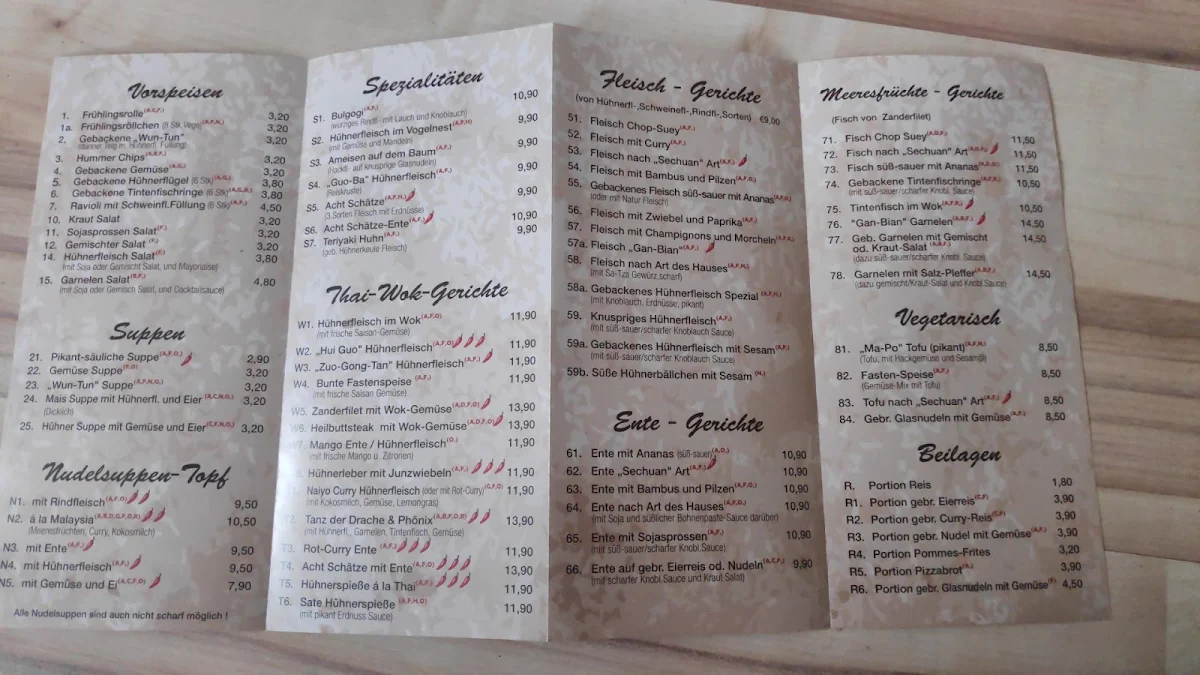 Vorspeisen
1. Frühlingsrolle (A,C,F,) 3,20
1a. Frühlingsröllchen (8 Stk.Vege) (A,F,N,) 3,20
2. Gebackene „Wun-Tun" 3,20
(dünner Teig m. Hühnerfl. Füllung)
3. Hummer Chips (A,B,F,) 3,20
4. Gebackene Gemüse (A,G,) 3,20
5. Gebackene Hühnerflügel (6 Stk) (A,G,) 3,80
6. Gebackene Tintenfischringe (6 Stk) 3,80
7. Ravioli mit Schweinfl.Füllung (6 Stk) (A,F,) 4,50
10. Kraut Salat 3,20
11. Sojasprossen Salat (F,) 3,20
12. Gemischter Salat (F,) 3,20
14. Hühnerfleisch Salat (F,) 3,80
(mit Soja oder Gemischt Salat, und Mayonaise)
15. Garnelen Salat (B,F,) 4,80
(mit Soja oder Gemisch Salat, und Cocktailsauce)
Suppen
21. Pikant-säuliche Suppe (A,F,O,) 2,90
22. Gemüse Suppe (F,O) 3,20
23. „Wun-Tun" Suppe (A,F,H,O,) 3,20
24. Mais Suppe mit Hühnerfl. und Eier (A,C,N,O,) 3,20
(Dicklich)
25. Hühner Suppe mit Gemüse und Eier (C,F,N,O,) 3,20
Nudelsuppen-Topf
N1. mit Rindfleisch (A,F,O) 9,50
N2. á la Malaysia (A,B,D,G,F,O,R) 10,50
(Meeresfrüchten, Curry, Kokosmilch)
N3. mit Ente (A,F,) 9,50
N4. mit Hühnerfleisch (A,F,) 9,50
N5. mit Gemüse und Ei (A,C,F,O) 7,90
Alle Nudelsuppen sind auch nicht scharf möglich !
Spezialitäten
S1. Bulgogi (A,F,) 10,90
(würziges Rindfl- mit Lauch und Knoblauch)
S2. Hühnerfleisch im Vogelnest (A,F,H) 9,90
(mit Gemüse und Mandeln)
S3. Ameisen auf dem Baum (A,F,) 9,90
(Hackfl- auf knusprige Glasnudeln)
S4. „Guo-Ba" Hühnerfleisch (A,F,) 9,90
(Reiskruste)
S5. Acht Schätze (A,F,H,) 9,90
(3.Sorten Fleisch mit Erdnüsse)
S6. Acht Schätze-Ente (A,F,) 10,90
S7. Teriyaki Huhn (A,F,) 9,90
(geb. Hühnerkeule Fleisch)
Thai-Wok-Gerichte
W1. Hühnerfleisch im Wok (A,F,O) 11,90
(mit frische Saison-Gemüse)
W2. „Hui Guo" Hühnerfleisch (A,F,O) 11,90
W3. „Zuo-Gong-Tan" Hühnerfleisch (A,F,) 11,90
W4. Bunte Fastenspeise (A,F,) 11,90
(mit frische Saisan Gemüse)
W5. Zanderfilet mit Wok-Gemüse (A,D,F,O) 13,90
W6. Heilbuttsteak mit Wok-Gemüse (A,D,F,O) 13,90
W7. Mango Ente / Hühnerfleisch (O,) 11,90
(mit frische Mango u. Zitronen)
8. Hühnerleber mit Junzwiebeln (A,F,) 11,90
1. Naiyo Curry Hühnerfleisch (oder mit Rot-Curry) (G,F,O) 11,90
(mit Kokosmilch, Gemüse, Lemongras)
2. Tanz der Drache & Phönix (A,B,F,D,R) 13,90
(mit Hühnerfl., Garnelen, Tintenfisch, Gemüse)
T3. Rot-Curry Ente (A,F,) 11,90
T4. Acht Schätze mit Ente (A,F,O) 13,90
T5. Hühnerspieße á la Thai (A,F,) 11,90
T6. Sate Hühnerspieße (A,F,H,O) 11,90
(mit pikant Erdnuss Sauce)
Fleisch - Gerichte
(von Hühnerfl-,Schweinefl-,Rindfl-,Sorten) €9,00
51. Fleisch Chop-Suey (A,F,)
52. Fleisch mit Curry (A,F,)
53. Fleisch nach „Sechuan" Art (A,F,)
54. Fleisch mit Bambus und Pilzen (A,F,O,)
55. Gebackenes Fleisch süß-sauer mit Ananas
(oder mit Natur Fleisch)
56. Fleisch mit Zwiebel und Paprika (A,F,)
57. Fleisch mit Champignons und Morcheln
57a. Fleisch „Gan-Bian" (A,F,)
58. Fleisch nach Art des Hauses (A,F,H,)
(mit Sa-Tza Gewürz,scharf)
58a. Gebackenes Hühnerfleisch Spezial (A,F,H,)
(mit Knoblauch, Erdnüsse, pikant)
59. Knuspriges Hühnerfleisch (A,F,)
(mit süß-sauer/scharfer Knoblauch Sauce)
59a. Gebackenes Hühnerfleisch mit Sesam (A,F,)
(mit süß-sauer/scharfer Knoblauch Sauce)
59b. Süße Hühnerbällchen mit Sesam (N,)
Ente - Gerichte
61. Ente mit Ananas (süß-sauer) (A,O,) 10,90
62. Ente „Sechuan" Art (A,F,) 10,90
63. Ente mit Bambus und Pilzen (A,F,O,) 10,90
64. Ente nach Art des Hauses (A,F,O,) 10,90
(mit Soja und süßlicher Bohnenpaste-Sauce darüber)
65. Ente mit Sojasprossen (A,F,) 10,90
(mit süß-sauer/scharfer Knobi.Sauce)
66. Ente auf gebr. Eierreis od. Nudeln (A,C,F,) 9,90
(mit scharfer Knobi.Sauce und Kraut Salat)
Meeresfrüchte - Gerichte
(Fisch von Zanderfilet)
71. Fisch Chop Suey (A,D,F,) 11,50
72. Fisch nach „Sechuan" Art 11,50
73. Fisch süß-sauer mit Ananas (A,D,O,) 11,50
74. Gebackene Tintenfischringe (A,F,R,) 10,50
(mit süß-sauer/scharfer Knobi. Sauce)
75. Tintenfisch im Wok (A,F,R,) 10,50
76. "Gan-Bian" Garnelen (A,B,F,) 14,50
77. Geb. Garnelen mit Gemischt 14,50
od. Kraut-Salat (A,B,F,)
(dazu süß-sauer/scharfer Knobl. Sauce)
78. Garnelen mit Salz-Pfeffer (A,B,F,) 14,50
(dazu gemischt/Kraut-Salat und Knobl Sauce)
Vegetarisch
81. „Ma-Po" Tofu (pikant) (A,F,N,) 8,50
(Tofu, mit Hackgemüse und Sesamöl)
82. Fasten-Speise (A,F,) 8,50
(Gemüse-Mix mit Tofu)
83. Tofu nach „Sechuan" Art (A,F,) 8,50
84. Gebr. Glasnudeln mit Gemüse (A,F,) 8,50
Beilagen
R. Portion Reis 1,80
R1. Portion gebr. Eierreis (C,F) 3,90
R2. Portion gebr. Curry-Reis (C,F) 3,90
R3. Portion gebr. Nudel mit Gemüse (A,F,) 3,90
R4. Portion Pommes-Frites 3,20
R5. Portion Pizzabrot (A,) 3,90
R6. Portion gebr. Glasnudeln mit Gemüse (F) 4,50